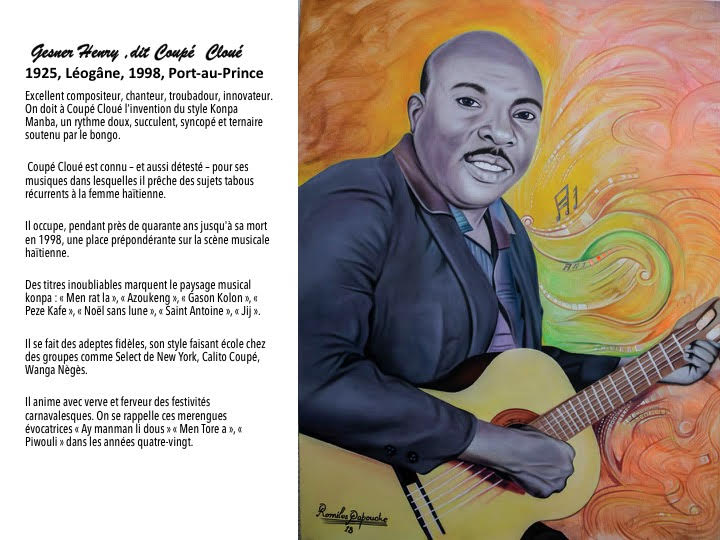 Gesner Henry ,dit Coupé Cloué
1925, Léogâne, 1998, Port-au-Prince
Excellent compositeur, chanteur, troubadour, innovateur.
On doit à Coupé Cloué l'invention du style Konpa
Manba, un rythme doux, succulent, syncopé et ternaire
soutenu par le bongo.
Coupé Cloué est connu – et aussi détesté – pour ses
musiques dans lesquelles il prêche des sujets tabous
récurrents à la femme haïtienne.
Il occupe, pendant près de quarante ans jusqu'à sa mort
en 1998, une place prépondérante sur la scène musicale
haïtienne.
Des titres inoubliables marquent le paysage musical
konpa : « Men rat la », « Azoukeng », « Gason Kolon », «
Peze Kafe », « Noël sans lune », « Saint Antoine », « Jij ».
Il se fait des adeptes fidèles, son style faisant école chez
des groupes comme Select de New York, Calito Coupé,
Wanga Nègès.
Il anime avec verve et ferveur des festivités
carnavalesques. On se rappelle ces merengues
évocatrices « Ay manman li dous » « Men Tore a », «
Piwouli » dans les années quatre-vingt.
18